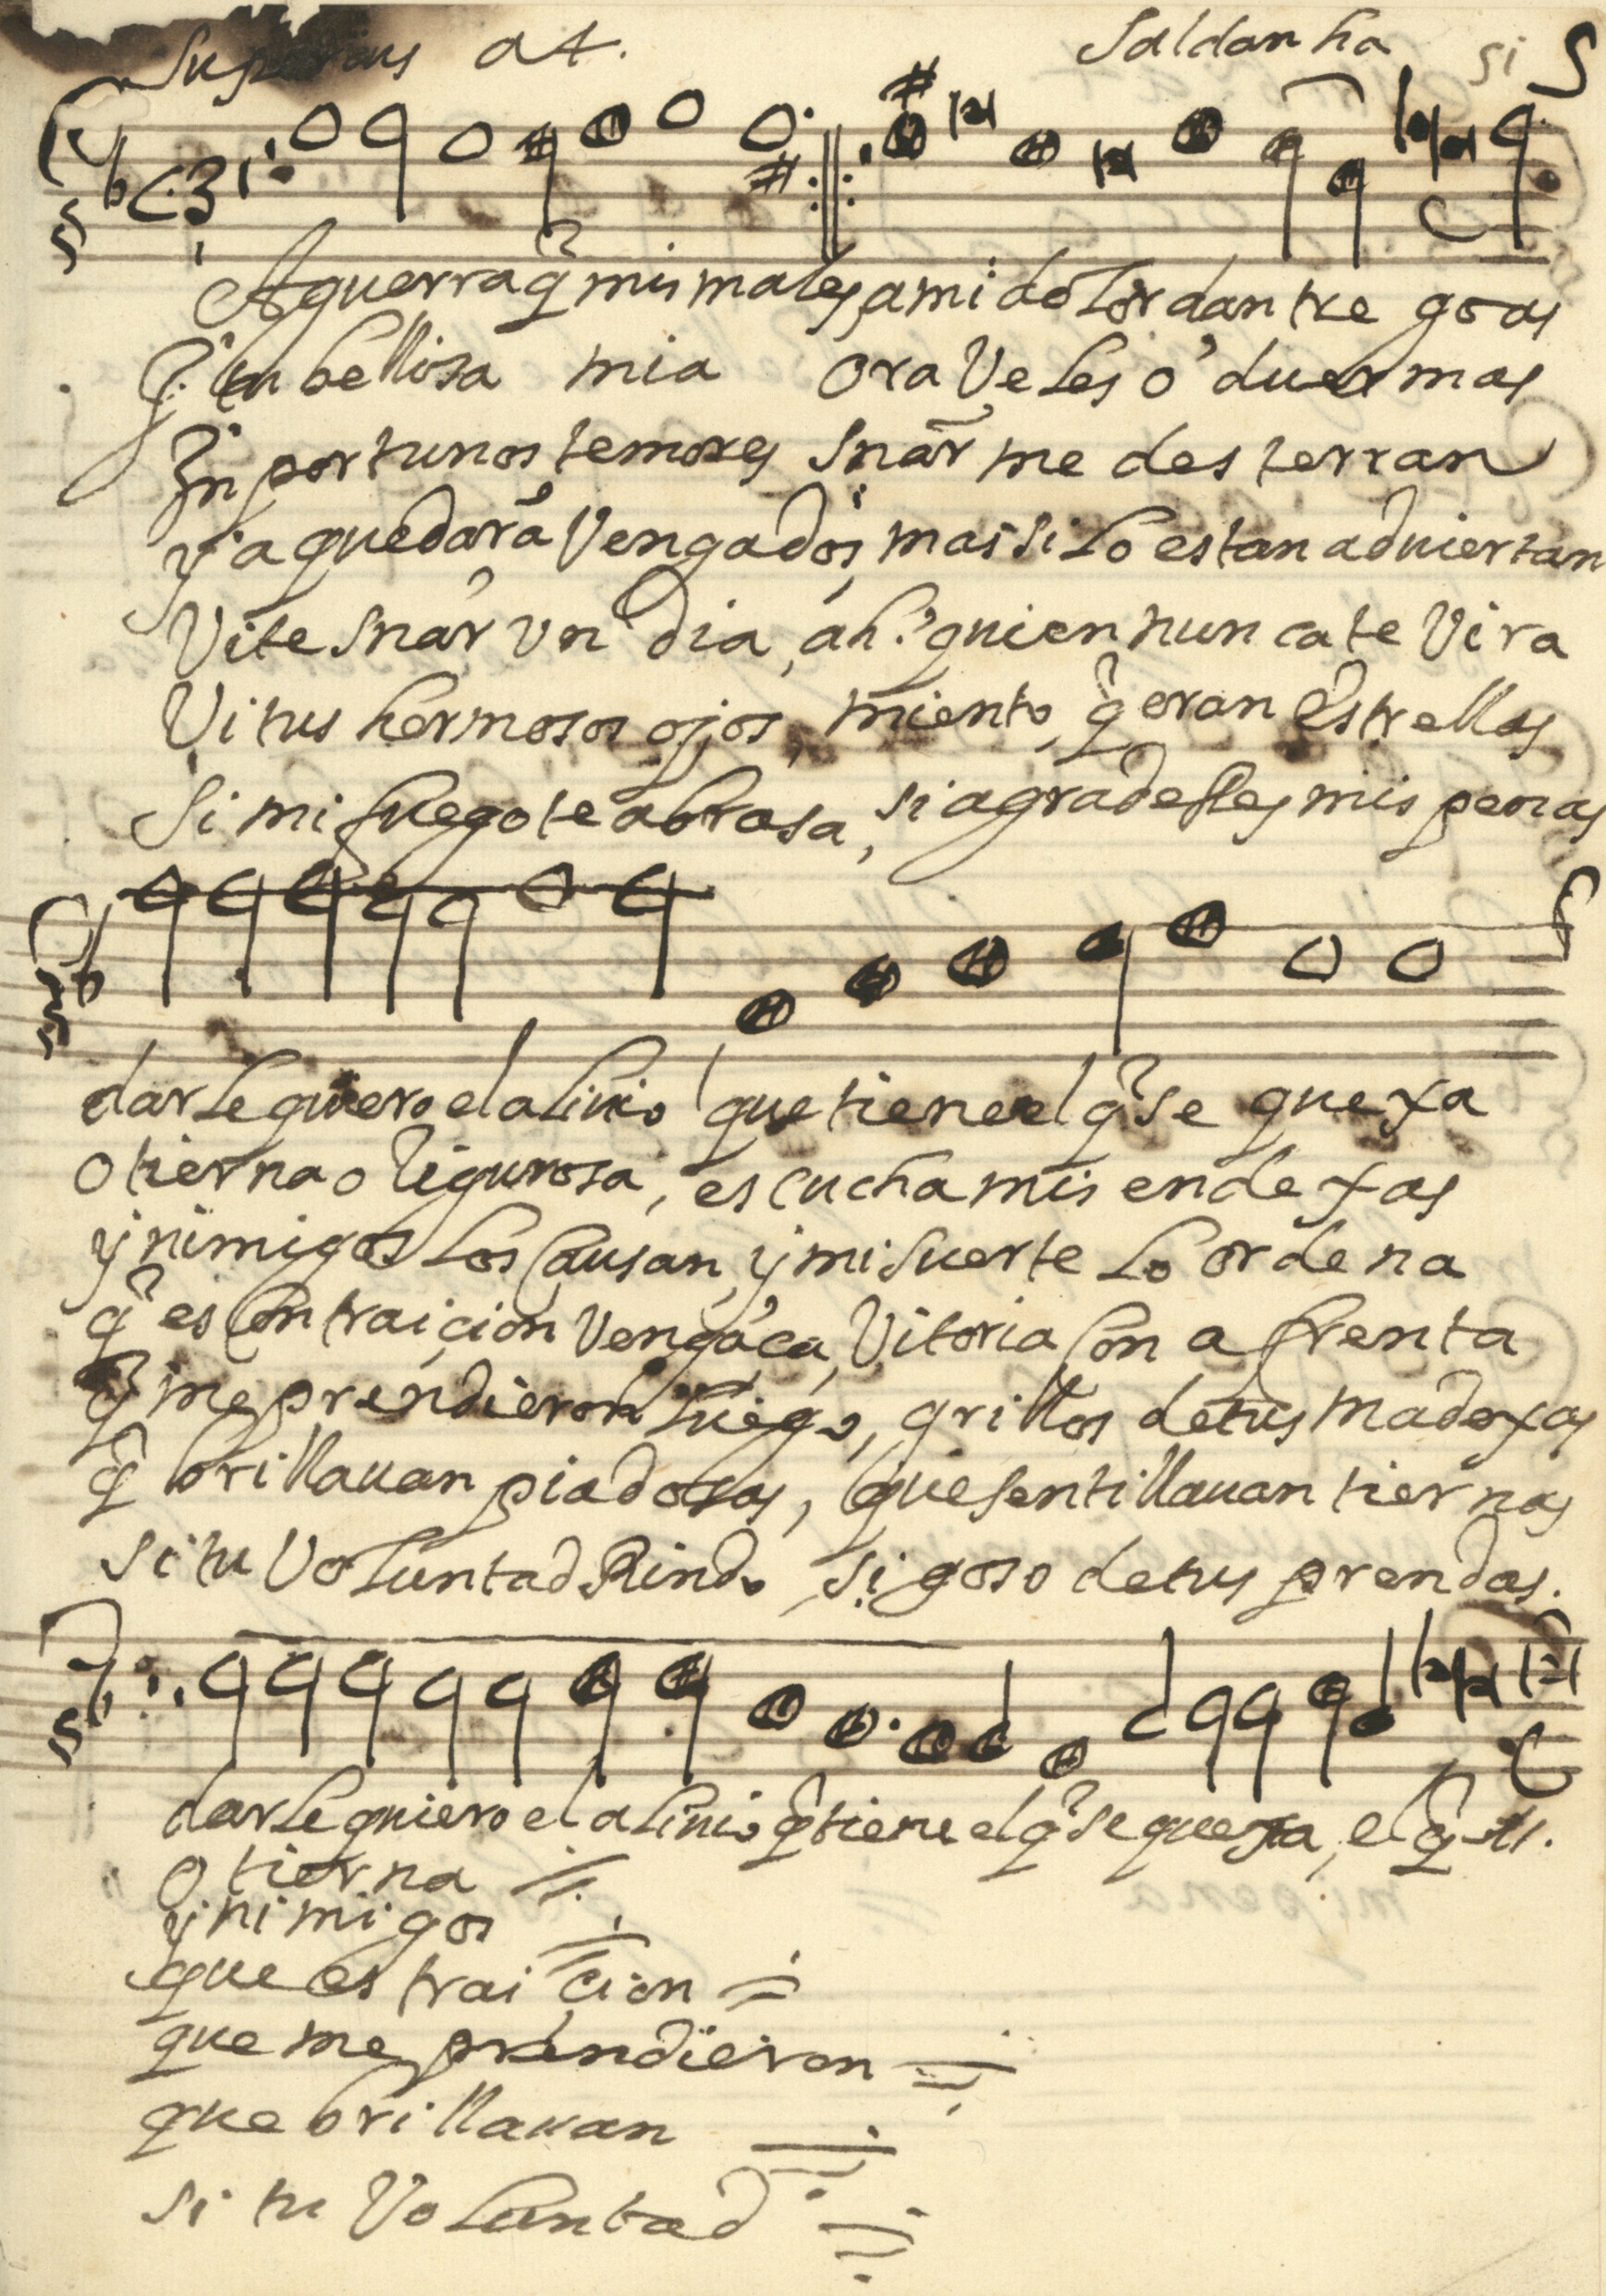 Superius a 4. Saldanha
Aguerra q̃ mis males, a mi dolor dan treguas
tu bellisa mia ora Veles o duermas
Ynportunos temores Snãr me des terran
ya quedarã Vengados, mas si lo estan aduiertan
Vite Snar vn dia, ah! quien nunca te Vira
Vi tus hermosos ojos, miento, q̃ eran Estrellas
Si mi fuego te abrasa, si agradesses mis penas
dar le quiero el aliuio que tiene el q̃ se quexa
O tierna o Rigurosa, escucha mis endexas
ynimigos los causan, y mi suerte lo ordena
q̃ es con traiçion Vengãça, Vitoria con afrenta
q̃ me prendieron luego, grillos de tus madexas
q̃ brillauan piadosas, que sentillauan tiernas
si tu Voluntad Rindo, si goso de tus prendas.
dar le quiero el aliuio q̃ tiene el q̃ se quexa, el q̃ //.
O tierna //.
ynimigos
que es traiçion
que me prendieron
que brillauan
si tu Voluntad